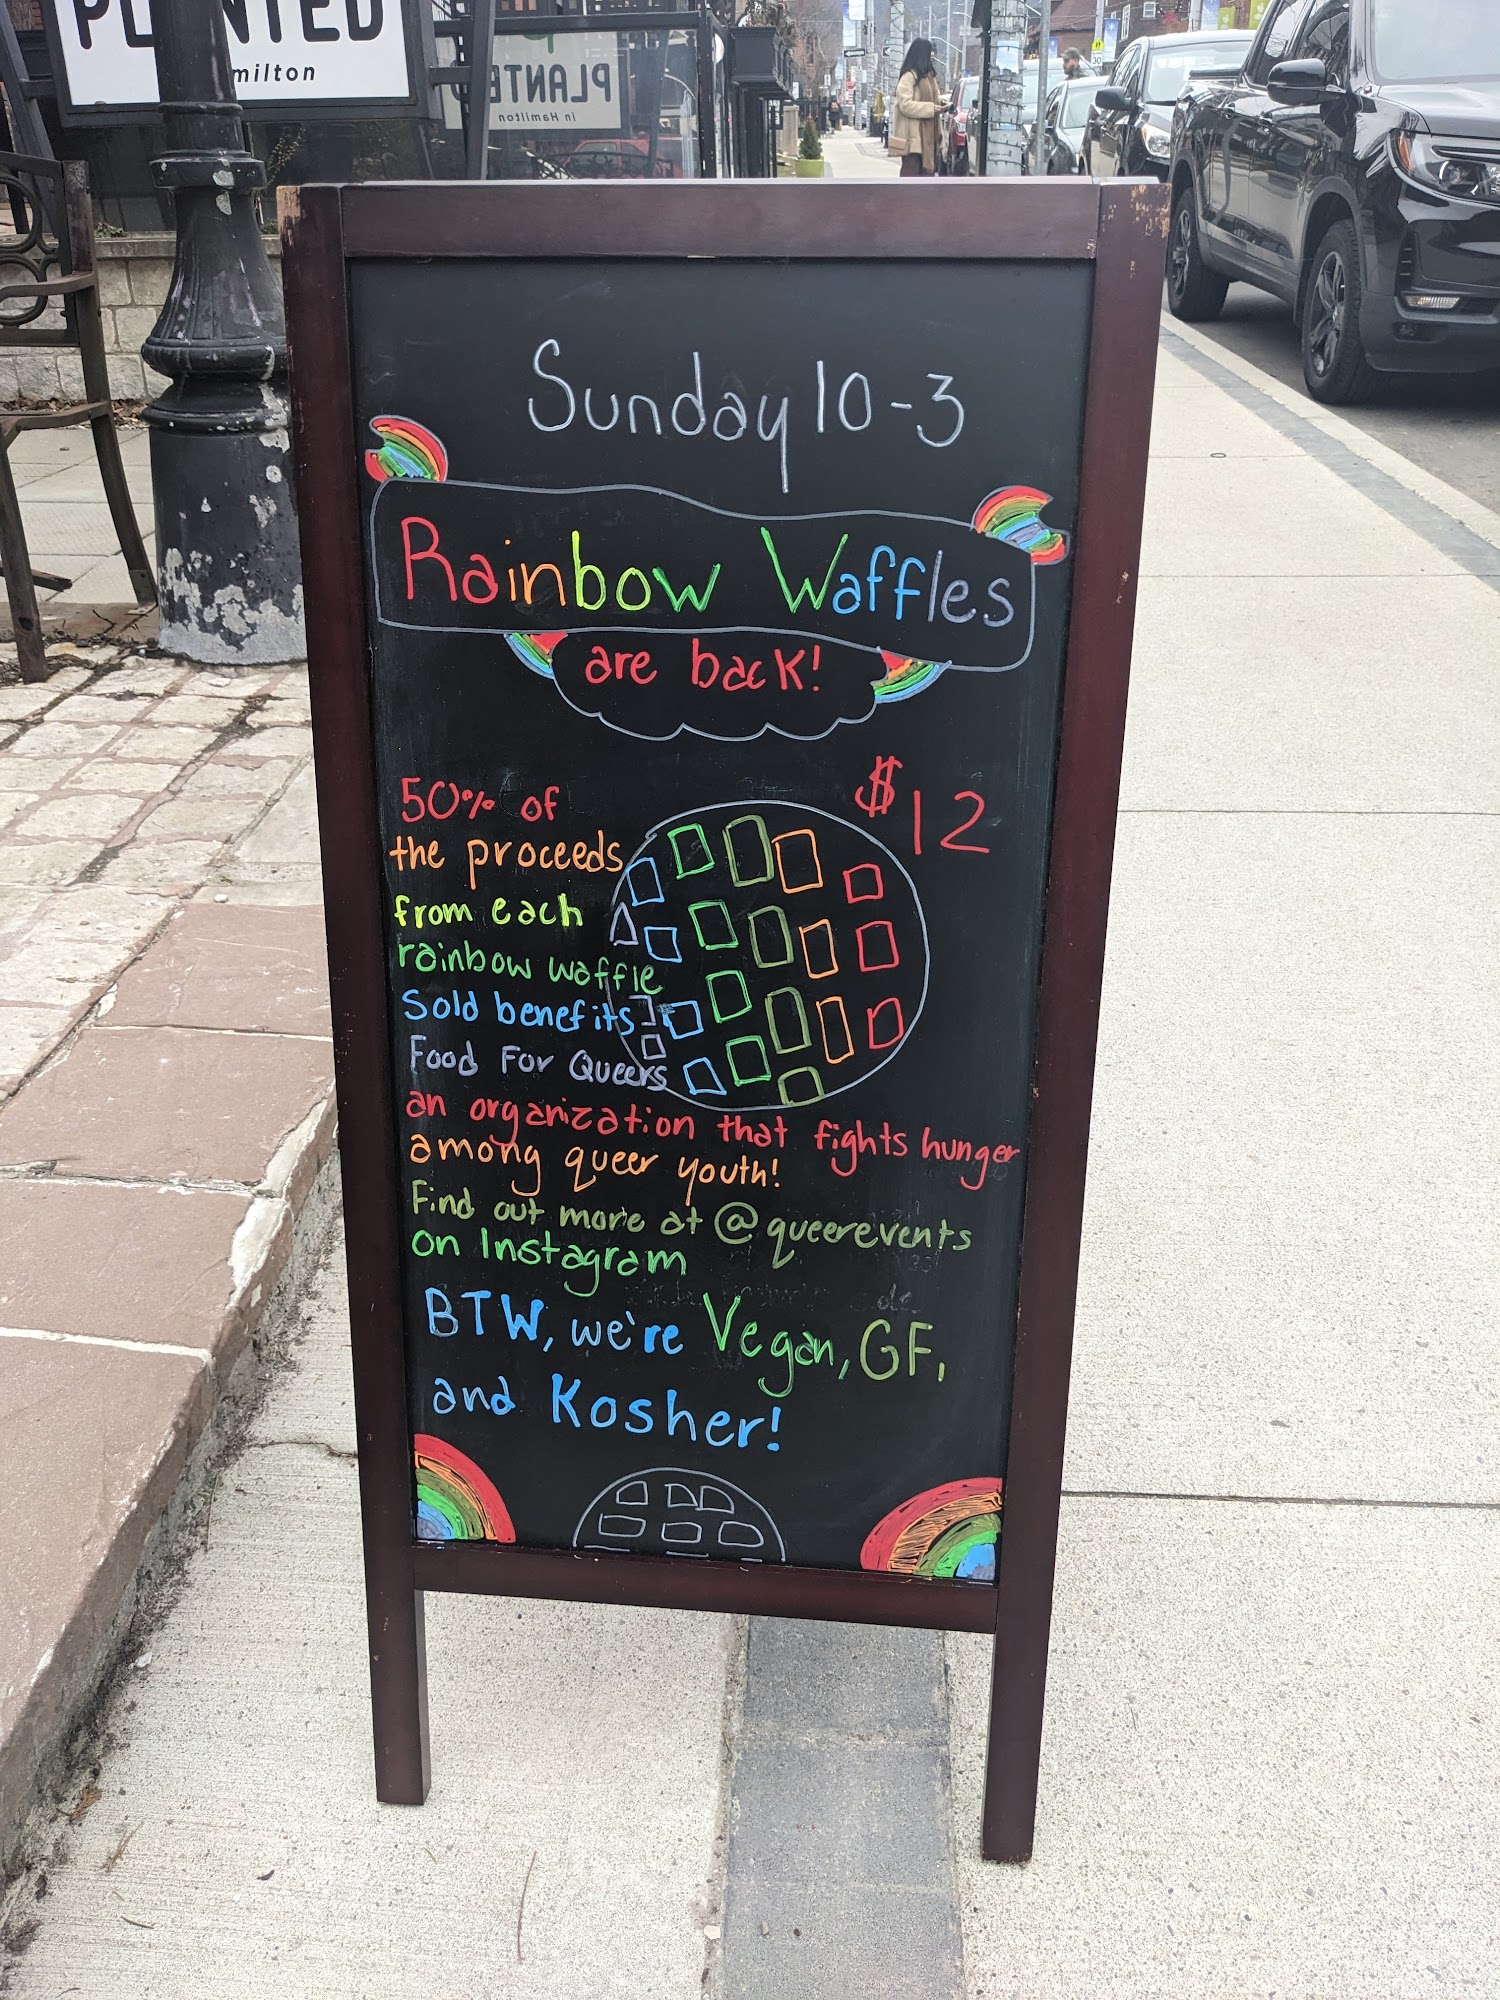 PLANTED
PLANTED
in Hamilton
Sunday 10-3
Rainbow Waffles
are back!
$12
50% of
the proceeds
from each
rainbow waffle
sold benefits
Food For Queers
an organization that fights hunger
among queer youth!
Find out more at @queerevents
on Instagram
BTW, we're Vegan, GF,
and Kosher!